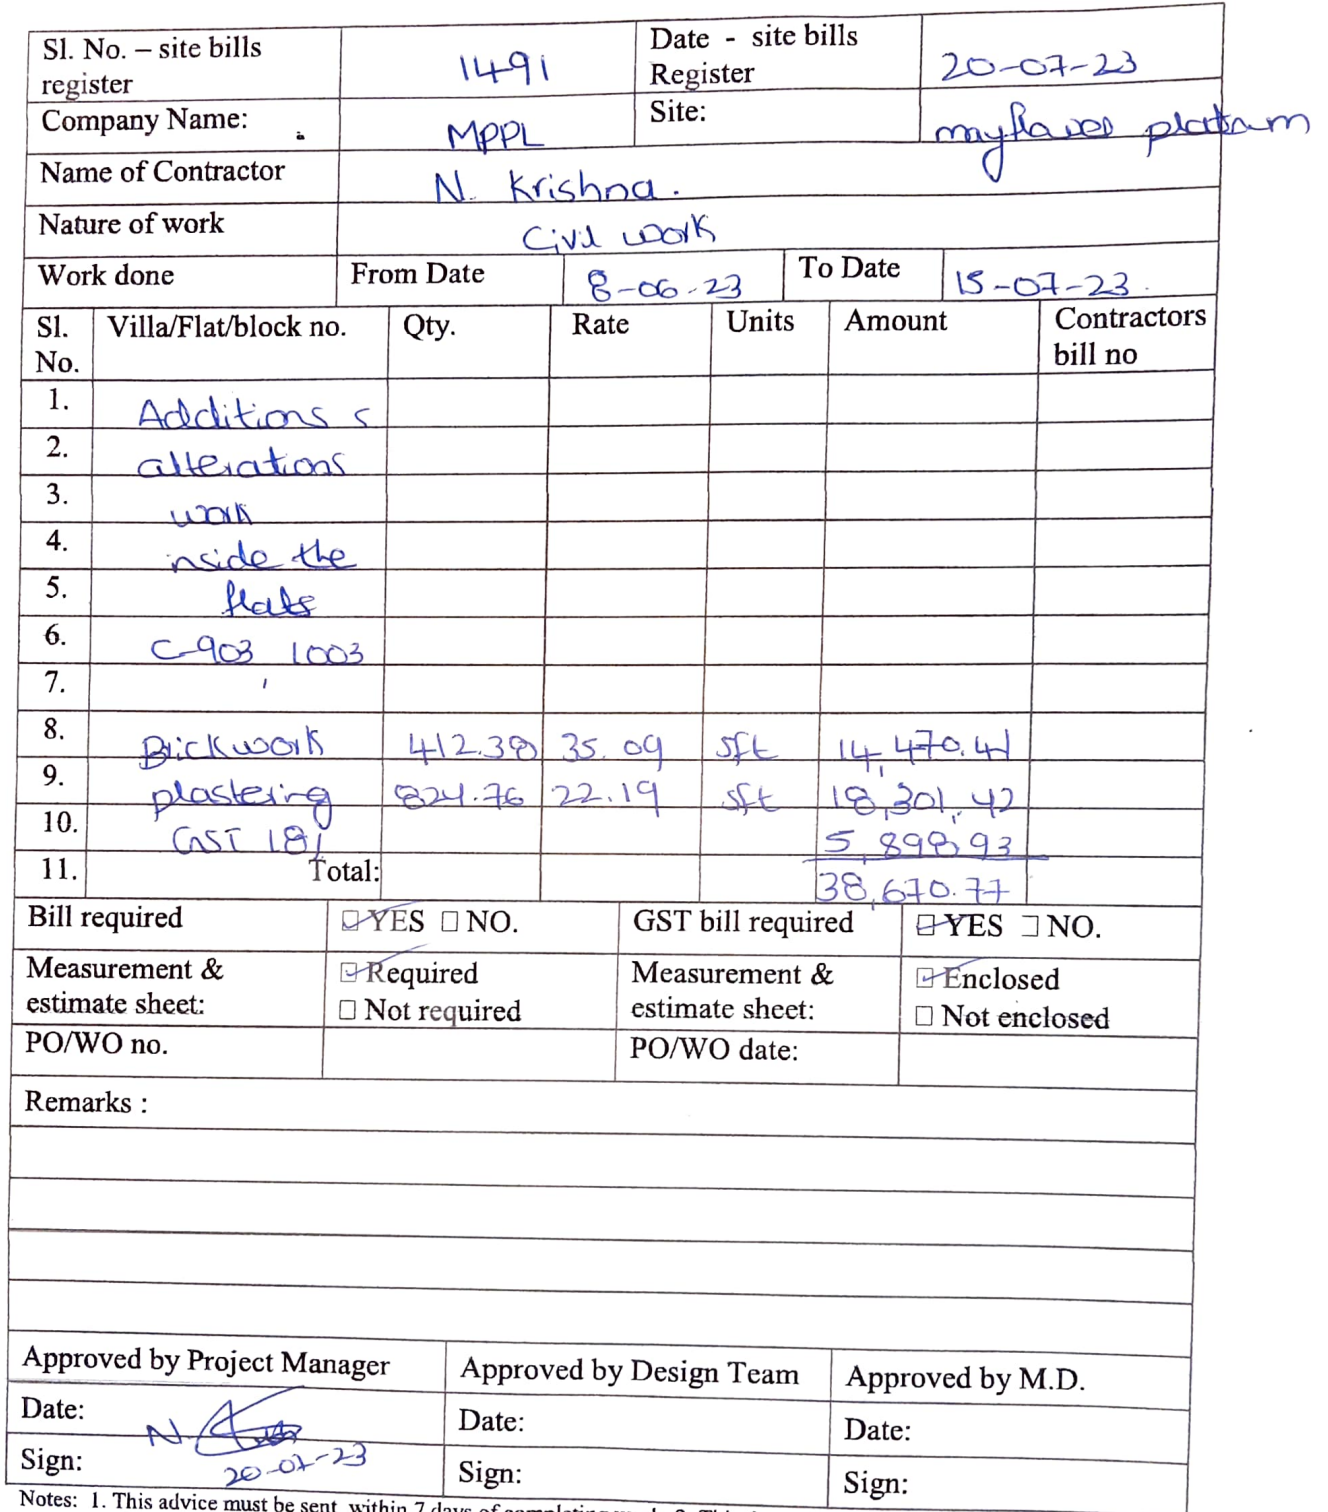 Sl. No. – site bills register 1491 Date - site bills Register 20-07-23
Company Name: MPPL Site: mayflower platinum
Name of Contractor N. Krishna.
Nature of work Civil work
Work done From Date 8-06-23 To Date 15-07-23.
Sl. No. Villa/Flat/block no. Qty. Rate Units Amount Contractors bill no
1. Additions &
2. alterations
3. work
4. inside the
5. flats
6. C-903, 1003
7.
8. Brickwork 412.38 35.09 sft 14,470.41
9. plastering 824.76 22.19 sft 18,301.42
10. GST 18% 5,898.93
11. Total: 38,670.77
Bill required ☑ YES ☐ NO. GST bill required ☑ YES ☐ NO.
Measurement & estimate sheet: ☑ Required ☐ Not required Measurement & estimate sheet: ☑ Enclosed ☐ Not enclosed
PO/WO no. PO/WO date:
Remarks :
Approved by Project Manager Approved by Design Team Approved by M.D.
Date: Date: Date:
Sign: 20-07-23 Sign: Sign:
Notes: 1. This advice must be sent within 7 days of